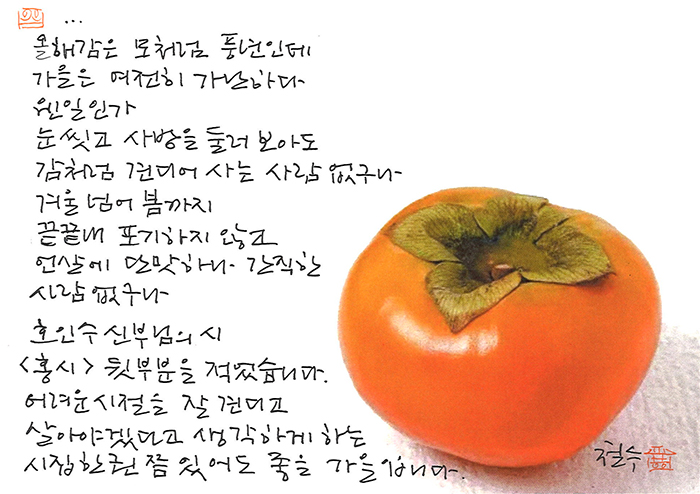 ...
올해감은 모처럼 풍년인데
가을은 여전히 가난하다
웬일인가
눈 씻고 사방을 둘러 보아도
감처럼 견디어 사는 사람 없구나
겨울 넘어 봄까지
끝끝내 포기하지 않고
언살에 단맛하나 간직한
사람 없구나
호인수 신부님의 시
<홍시> 뒷부분을 적었습니다.
어려운시절을 잘 견디고
살아야겠다고 생각하게 하는
시집한권쯤 있어도 좋을 가을입니다.
철수